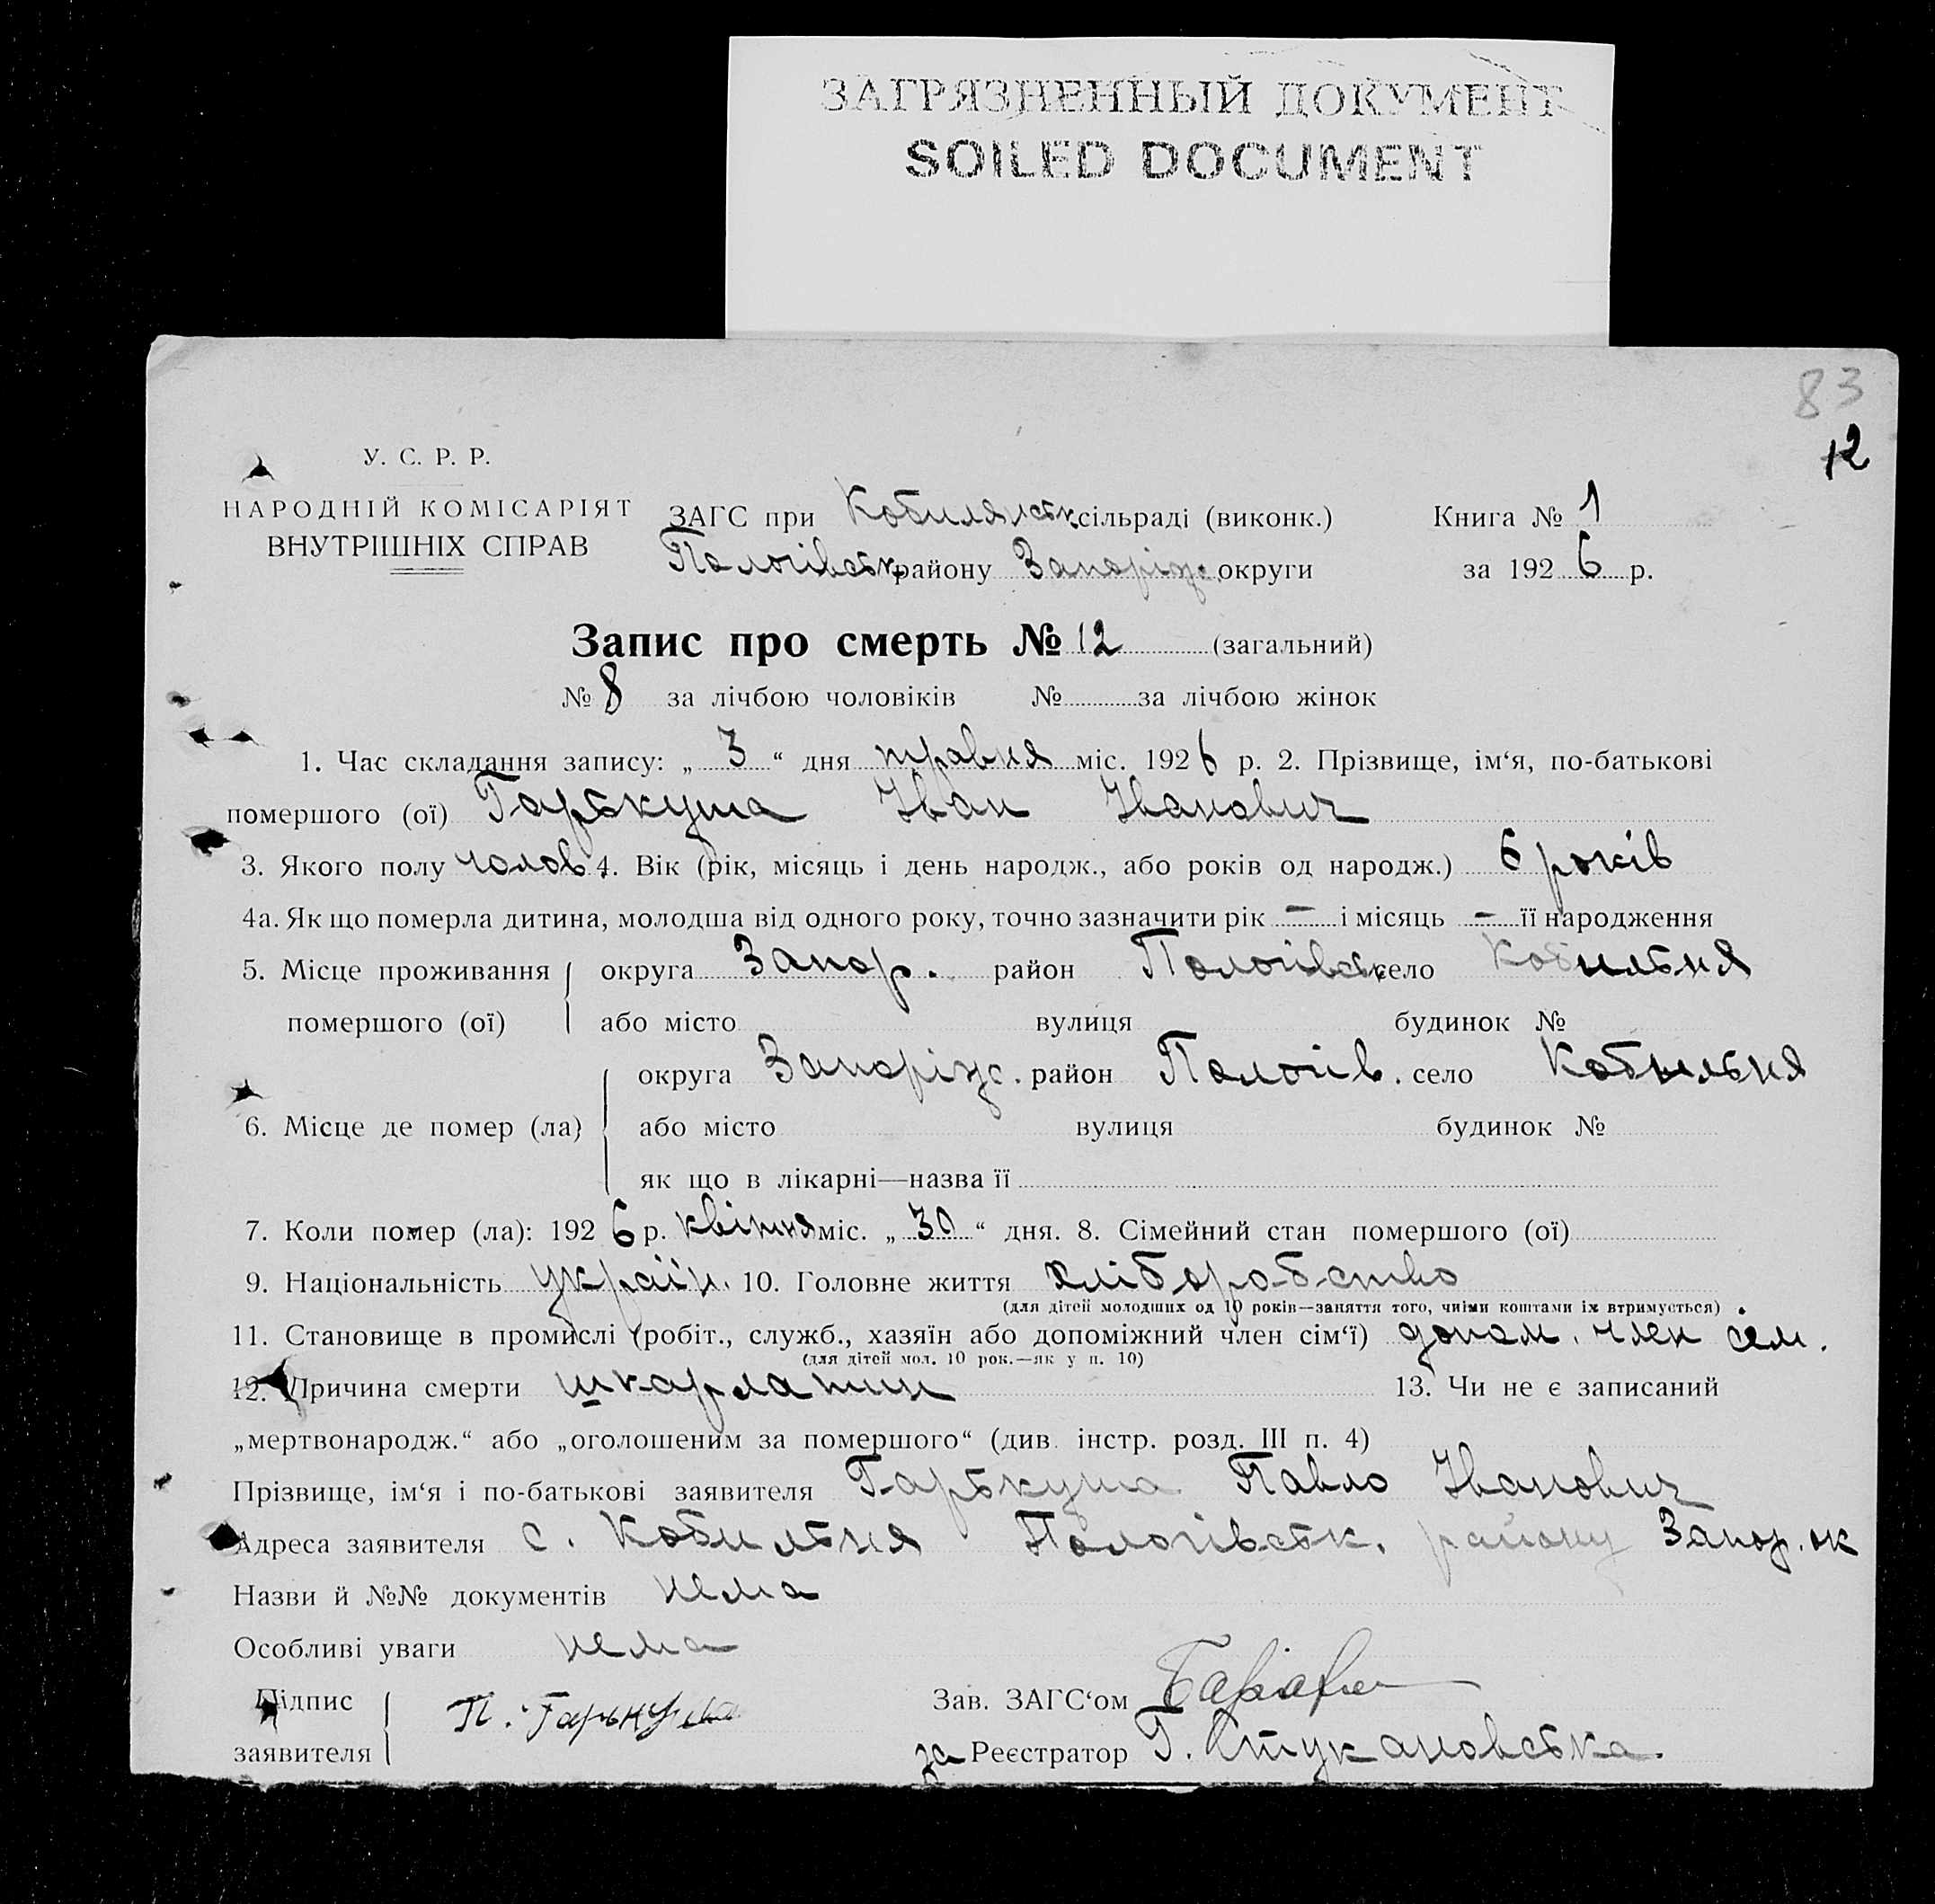 ЗАГРЯЗНЕННЫЙ ДОКУМЕНТ
SOILED DOCUMENT
83
12
У. С. Р. Р.
НАРОДНІЙ КОМІСАРІЯТ
ВНУТРІШНІХ СПРАВ
ЗАГС при Кобилянськ сільраді (виконк.) Книга № 1
Пологівськ району Запоріж. округи за 1926 р.
Запис про смерть № 12 (загальний)
№ 8 за лічбою чоловіків № за лічбою жінок
1. Час складання запису: „ 3 “ дня травня міс. 1926 р. 2. Прізвище, ім‘я, по-батькові
помершого (ої) Гарькуша Іван Іванович
3. Якого полу чолов. 4. Вік (рік, місяць і день народж., або років од народж.) 6 років
4а. Як що померла дитина, молодша від одного року, точно зазначити рік – і місяць – її народження
5. Місце проживання округа Запор. район Пологівськ село Кобильня
помершого (ої) або місто вулиця будинок №
округа Запоріж. район Пологів. село Кобильня
6. Місце де помер (ла) або місто вулиця будинок №
як що в лікарні—назва її
7. Коли помер (ла): 1926 р. квітня міс. „ 30 “ дня. 8. Сімейний стан помершого (ої)
9. Національність україн. 10. Головне життя хліборобство
(для дітей молодших од 10 років—заняття того, чиїми коштами їх втримується)
11. Становище в промислі (робіт., служб., хазяїн або допоміжний член сім‘ї) допом. член сем.
(для дітей мол. 10 рок.—як у п. 10)
12. Причина смерти шкарлатин 13. Чи не є записаний
„мертвонародж.“ або „оголошеним за помершого“ (див. інстр. розд. III п. 4)
Прізвище, ім‘я і по-батькові заявителя Гарькуша Павло Іванович
Адреса заявителя с. Кобильня Пологівськ. району Запор. ок
Назви й №№ документів нема
Особливі уваги нема
Підпис заявителя П. Гарькуша Зав. ЗАГС‘ом
за Реєстратор Г. Стукановська.